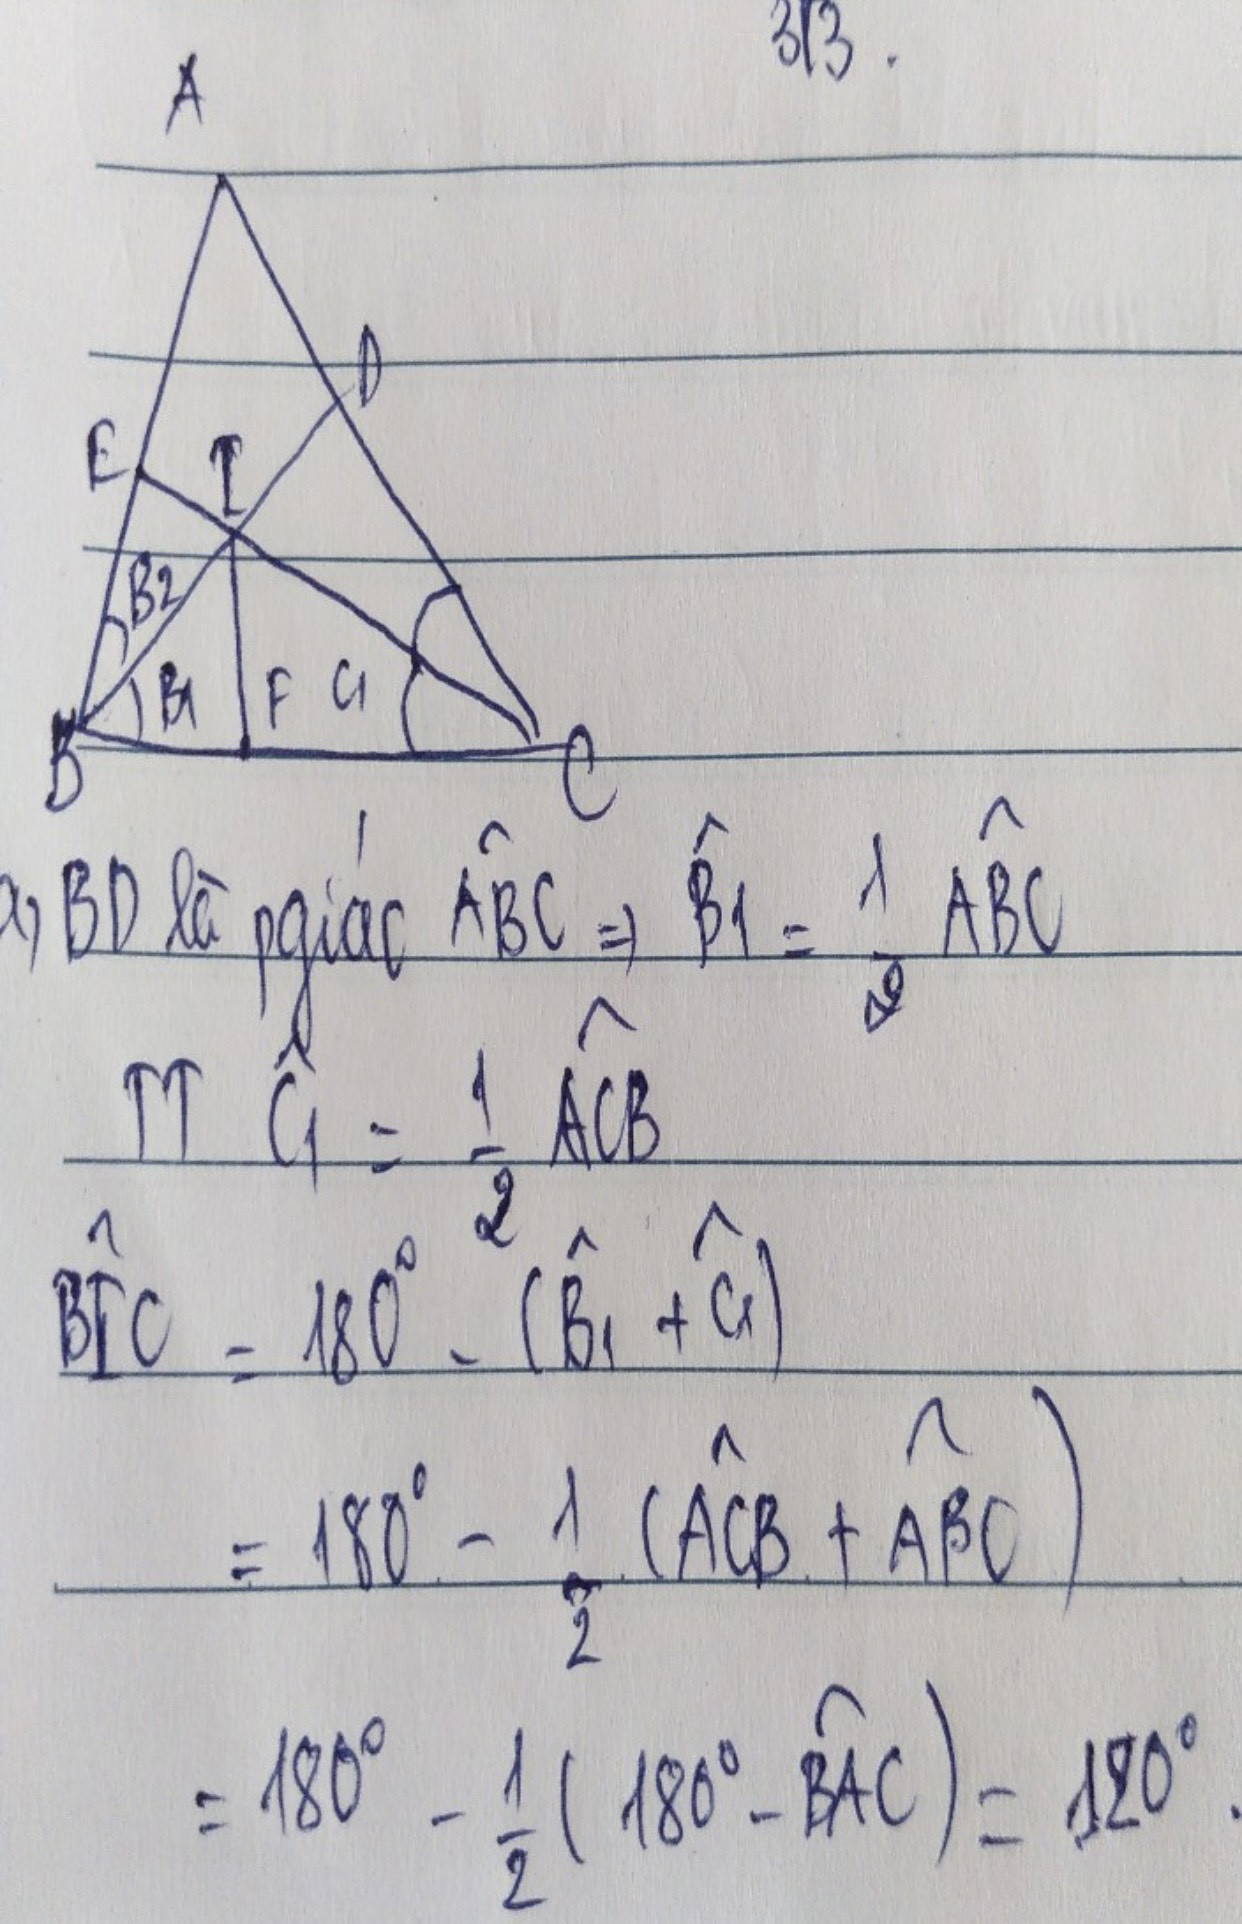 3/3.
A
D
E
I
B2
B1
F
C1
B
C
a, BD là pgiác ABĈ => B̂1 = 1/2 ABĈ
TT Ĉ1 = 1/2 AĈB
BÎC = 180° - (B̂1 + Ĉ1)
= 180° - 1/2 (AĈB + AB̂C)
= 180° - 1/2 (180° - BÂC) = 120°.